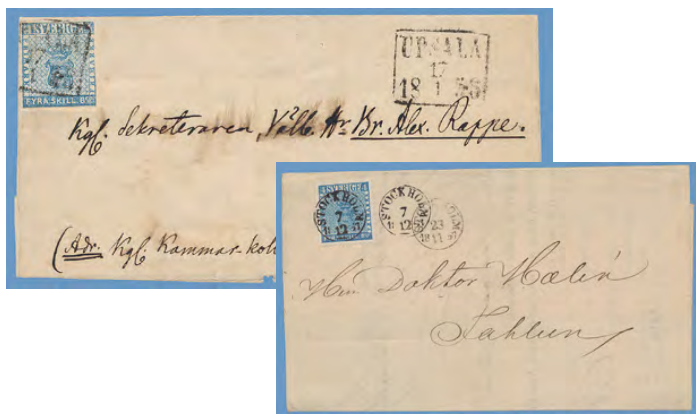 SVERIGE
FYRA SKILL. BCO
UPSALA
17
18 1 56
Kgl. Sekreteraren, Välb. Hr Br. Alex. Rappe.
(Adr. Kgl. Kammar-
SVERIGE
STOCKHOLM
7
12
STOCKHOLM
7
12
23
11
Herr Doktor Malin
Fahlun